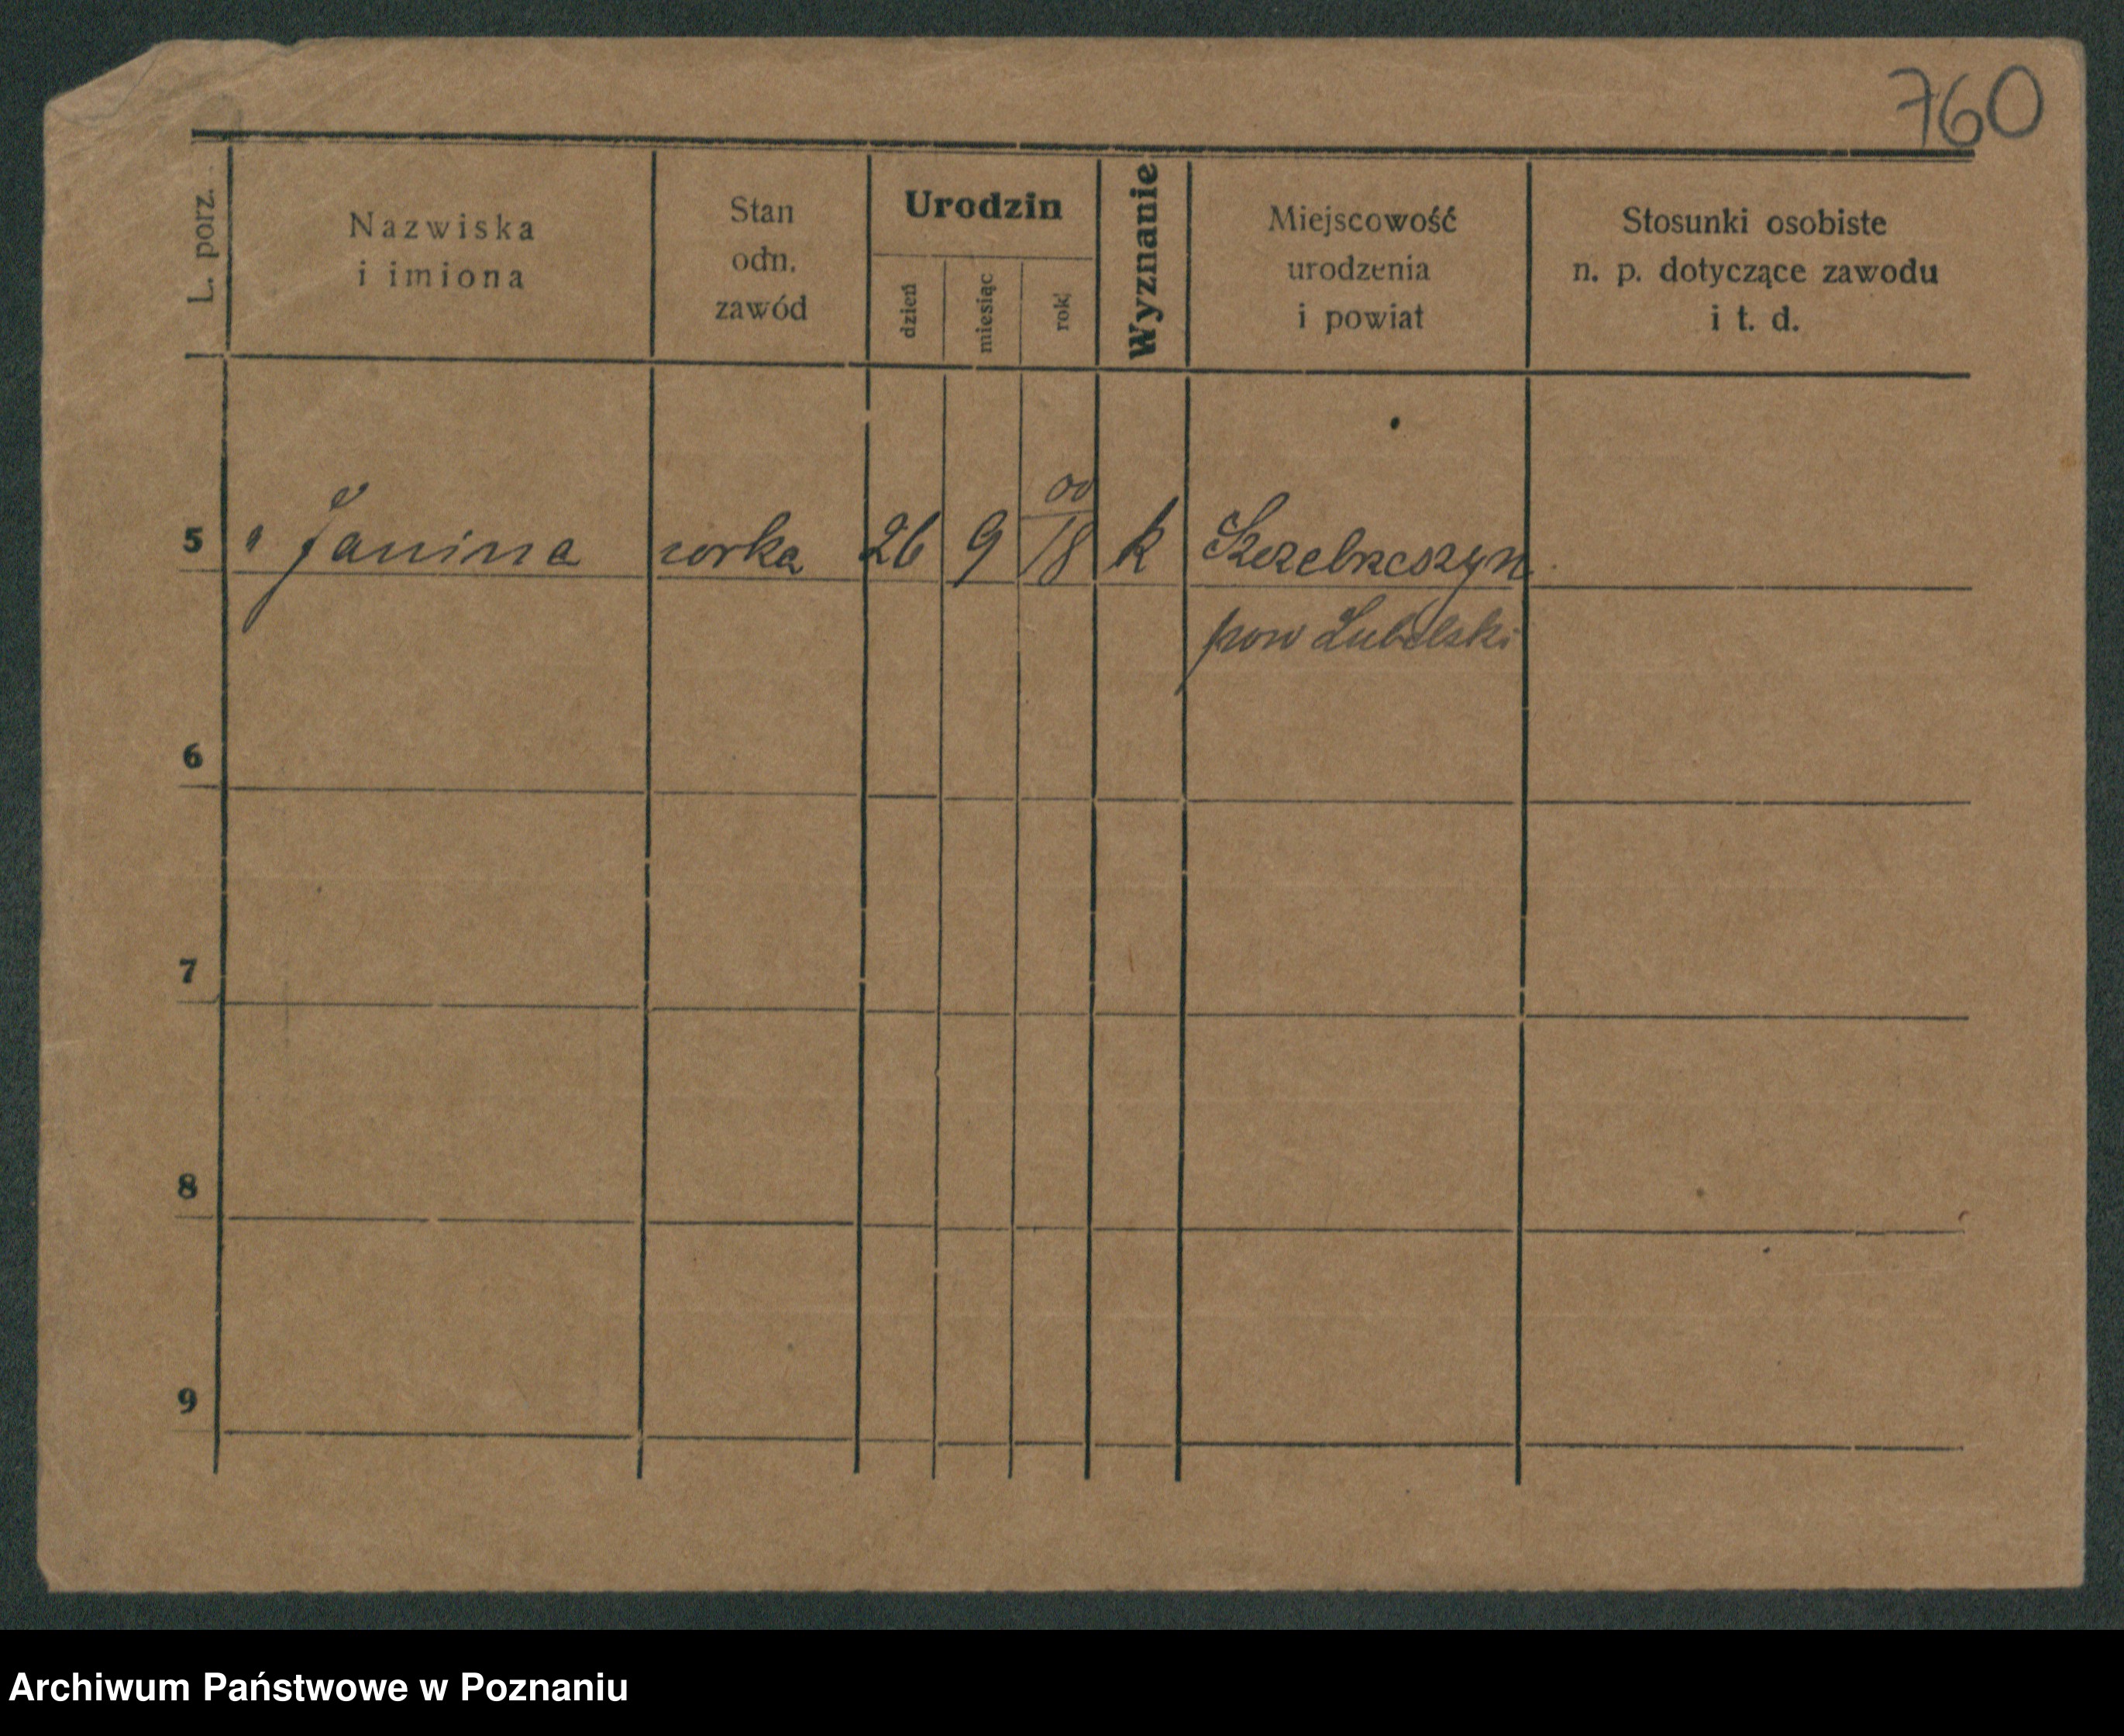 760
L. porz.
Nazwiska
i imiona
Stan
odn.
zawód
Urodzin
dzień
miesiąc
rok
Wyznanie
Miejscowość
urodzenia
i powiat
Stosunki osobiste
n. p. dotyczące zawodu
i t. d.
5 " Janina corka 26 9 00/18 k Szczebrzeszyn
pow Lubelski
6
7
8
9
Archiwum Państwowe w Poznaniu